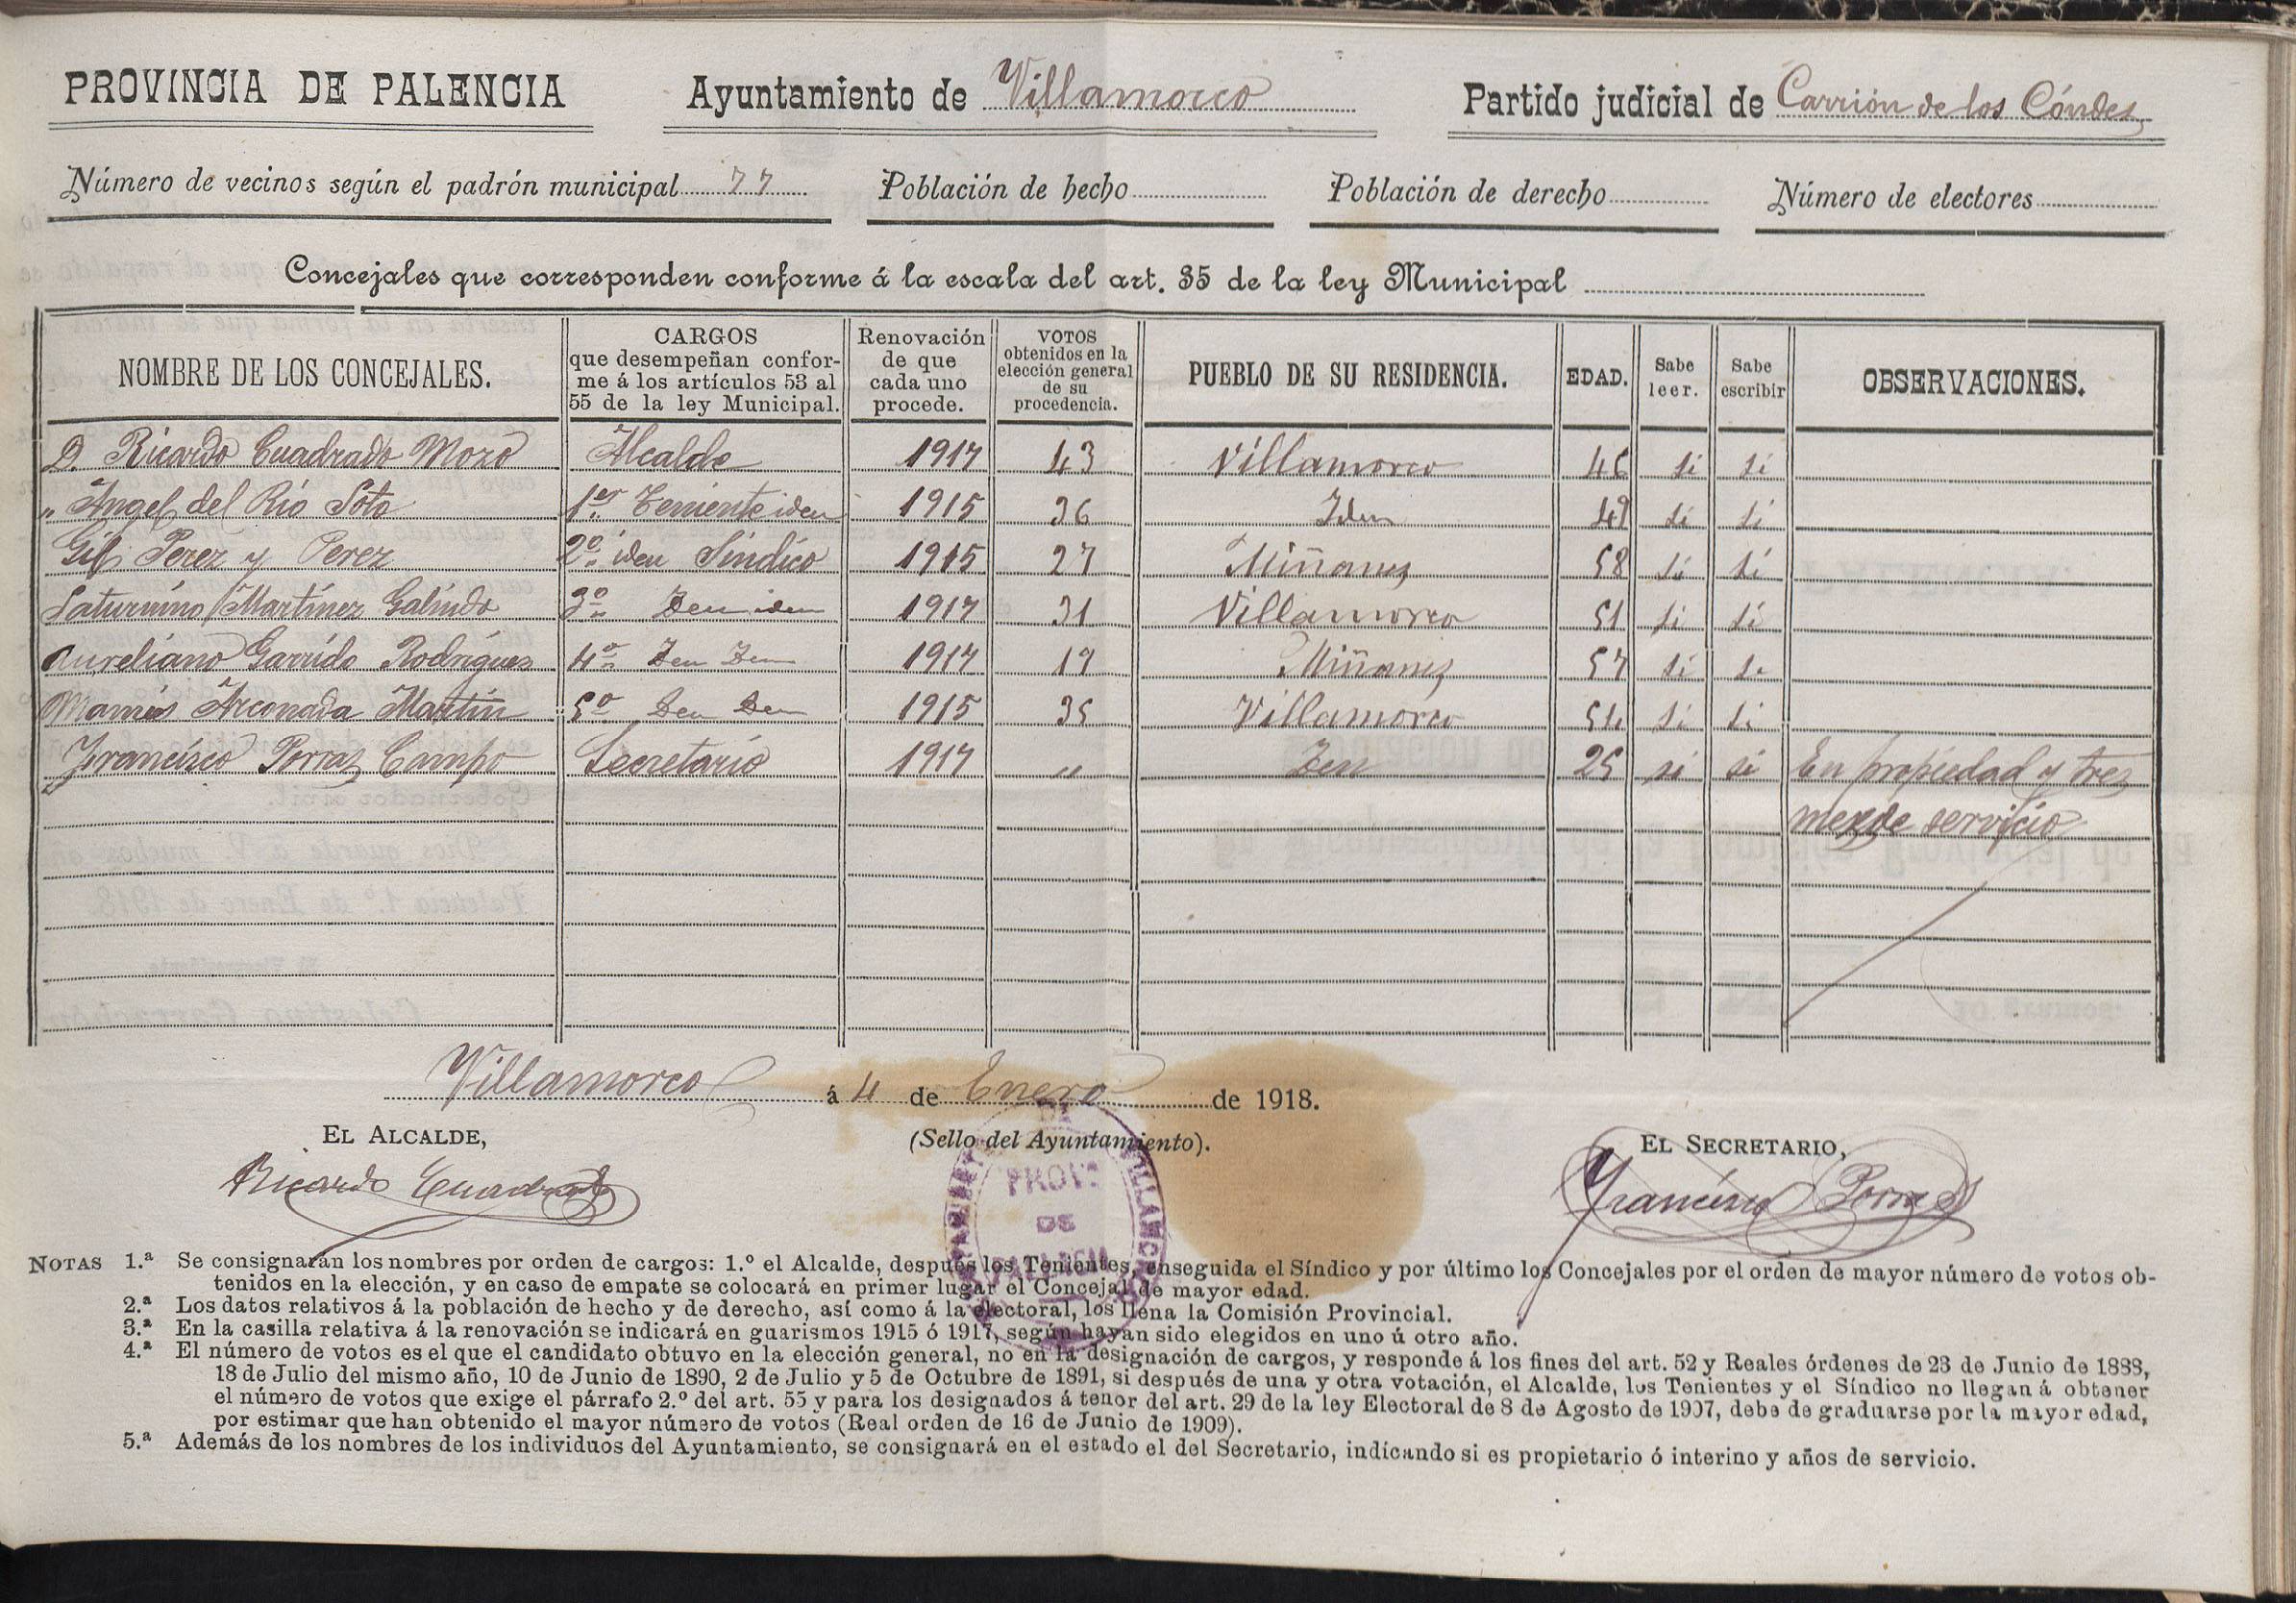 PROVINCIA DE PALENCIA Ayuntamiento de Villamorco Partido judicial de Carrión de los Cóndes
Número de vecinos según el padrón municipal 77 Población de hecho Población de derecho Número de electores
Concejales que corresponden conforme á la escala del art. 35 de la ley Municipal
NOMBRE DE LOS CONCEJALES. CARGOS que desempeñan conforme á los artículos 53 al 55 de la ley Municipal. Renovación de que cada uno procede. VOTOS obtenidos en la elección general de su procedencia. PUEBLO DE SU RESIDENCIA. EDAD. Sabe leer. Sabe escribir OBSERVACIONES.
D. Ricardo Cuadrado Moro Alcalde 1917 43 Villamorco 46 si si
" Angel del Rio Soto 1er Teniente iden 1915 36 Iden 49 si si
Gil Perez y Perez 2º iden Sindico 1915 27 Miñanes 58 si si
Saturnino Martinez Galindo 3º Iden iden 1917 31 Villamorco 51 si si
Aureliano Garrido Rodrigues 4º Iden Iden 1917 19 Miñanes 57 si si
Mamés Arconada Martin 5º Iden Iden 1915 35 Villamorco 54 si si
Francisco Porras Campo Secretario 1917 " Iden 25 si si En propiedad y tres
mes de servicio
Villamorco á 4 de Enero de 1918.
EL ALCALDE, (Sello del Ayuntamiento). EL SECRETARIO,
Ricardo Cuadrado Francisco Porras
PROVª
DE
PALENCIA
NOTAS 1.ª Se consignarán los nombres por orden de cargos: 1.º el Alcalde, después los Tenientes, enseguida el Síndico y por último los Concejales por el orden de mayor número de votos ob-
tenidos en la elección, y en caso de empate se colocará en primer lugar el Concejal de mayor edad.
2.ª Los datos relativos á la población de hecho y de derecho, así como á la electoral, los llena la Comisión Provincial.
3.ª En la casilla relativa á la renovación se indicará en guarismos 1915 ó 1917, según hayan sido elegidos en uno ú otro año.
4.ª El número de votos es el que el candidato obtuvo en la elección general, no en la designación de cargos, y responde á los fines del art. 52 y Reales órdenes de 23 de Junio de 1888,
18 de Julio del mismo año, 10 de Junio de 1890, 2 de Julio y 5 de Octubre de 1891, si después de una y otra votación, el Alcalde, los Tenientes y el Síndico no llegan á obtener
el número de votos que exige el párrafo 2.º del art. 55 y para los designados á tenor del art. 29 de la ley Electoral de 8 de Agosto de 1907, debe de graduarse por la mayor edad,
por estimar que han obtenido el mayor número de votos (Real orden de 16 de Junio de 1909).
5.ª Además de los nombres de los individuos del Ayuntamiento, se consignará en el estado el del Secretario, indicando si es propietario ó interino y años de servicio.